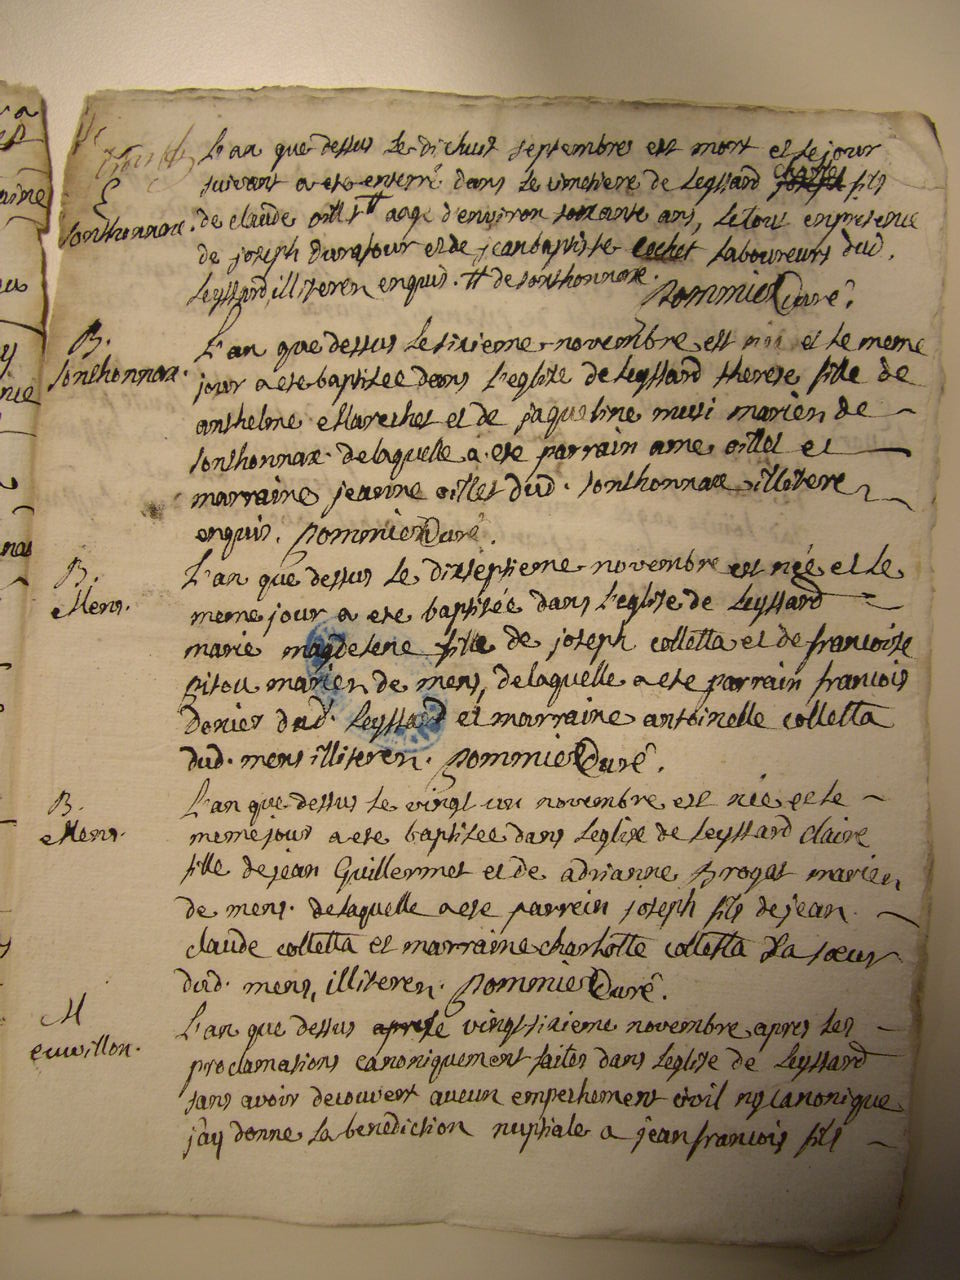 L'an que dessus le dixhuit septembre est mort et le jour
suivant a été enterré dans le cimetiere de Leyssard fils
Sonthonnax. de claude aagé d'environ ans, le tout en presence
de joseph Durafour et de jean baptiste cochet laboureurs dud.
Leyssard illiteren enquis. # de sonthonnax.
Pommier Curé.
B.
Sonthonnax.
L'an que dessus le sixieme novembre est née et le meme
jour a ete baptisee dans l'eglise de Leyssard therese fille de
anthelme Marechet et de jaqueline musi marien de
sonthonnax. de laquelle a ete parrain ame oillet et
marraine jeanne oillet dud. sonthonnax illitere
enquis. Pommier Curé.
B.
Mens.
L'an que dessus le dixseptieme novembre est née et le
meme jour a ete baptisée dans l'eglise de Leyssard
marie magdelene fille de joseph colletta et de francoise
pitou marien de mens, de laquelle a ete parrain francois
donier dud. Leyssard et marraine antoinette colletta
dud. mens illiteren. Pommier Curé.
B.
Mens.
L'an que dessus le vingt un novembre est née et le
meme jour a ete baptisée dans l'eglise de Leyssard claire
fille de jean Guillermet et de adrianne Broget marien
de mens. de laquelle a ete parrein joseph fils de jean
claude colletta et marraine charlotte colletta sa sœur
dud. mens, illiteren. Pommier Curé.
M
cuvillon.
L'an que dessus le vingtsixieme novembre apres les
proclamations canoniquement faites dans l'eglise de Leyssard
sans avoir decouvert aucun empechement civil ny canonique
j'ay donne la benediction nuptiale a jean francois fils